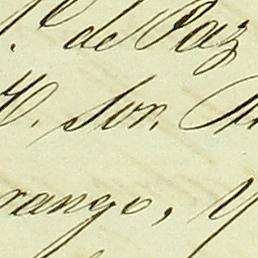 de Paz
H. Son.
rango, y